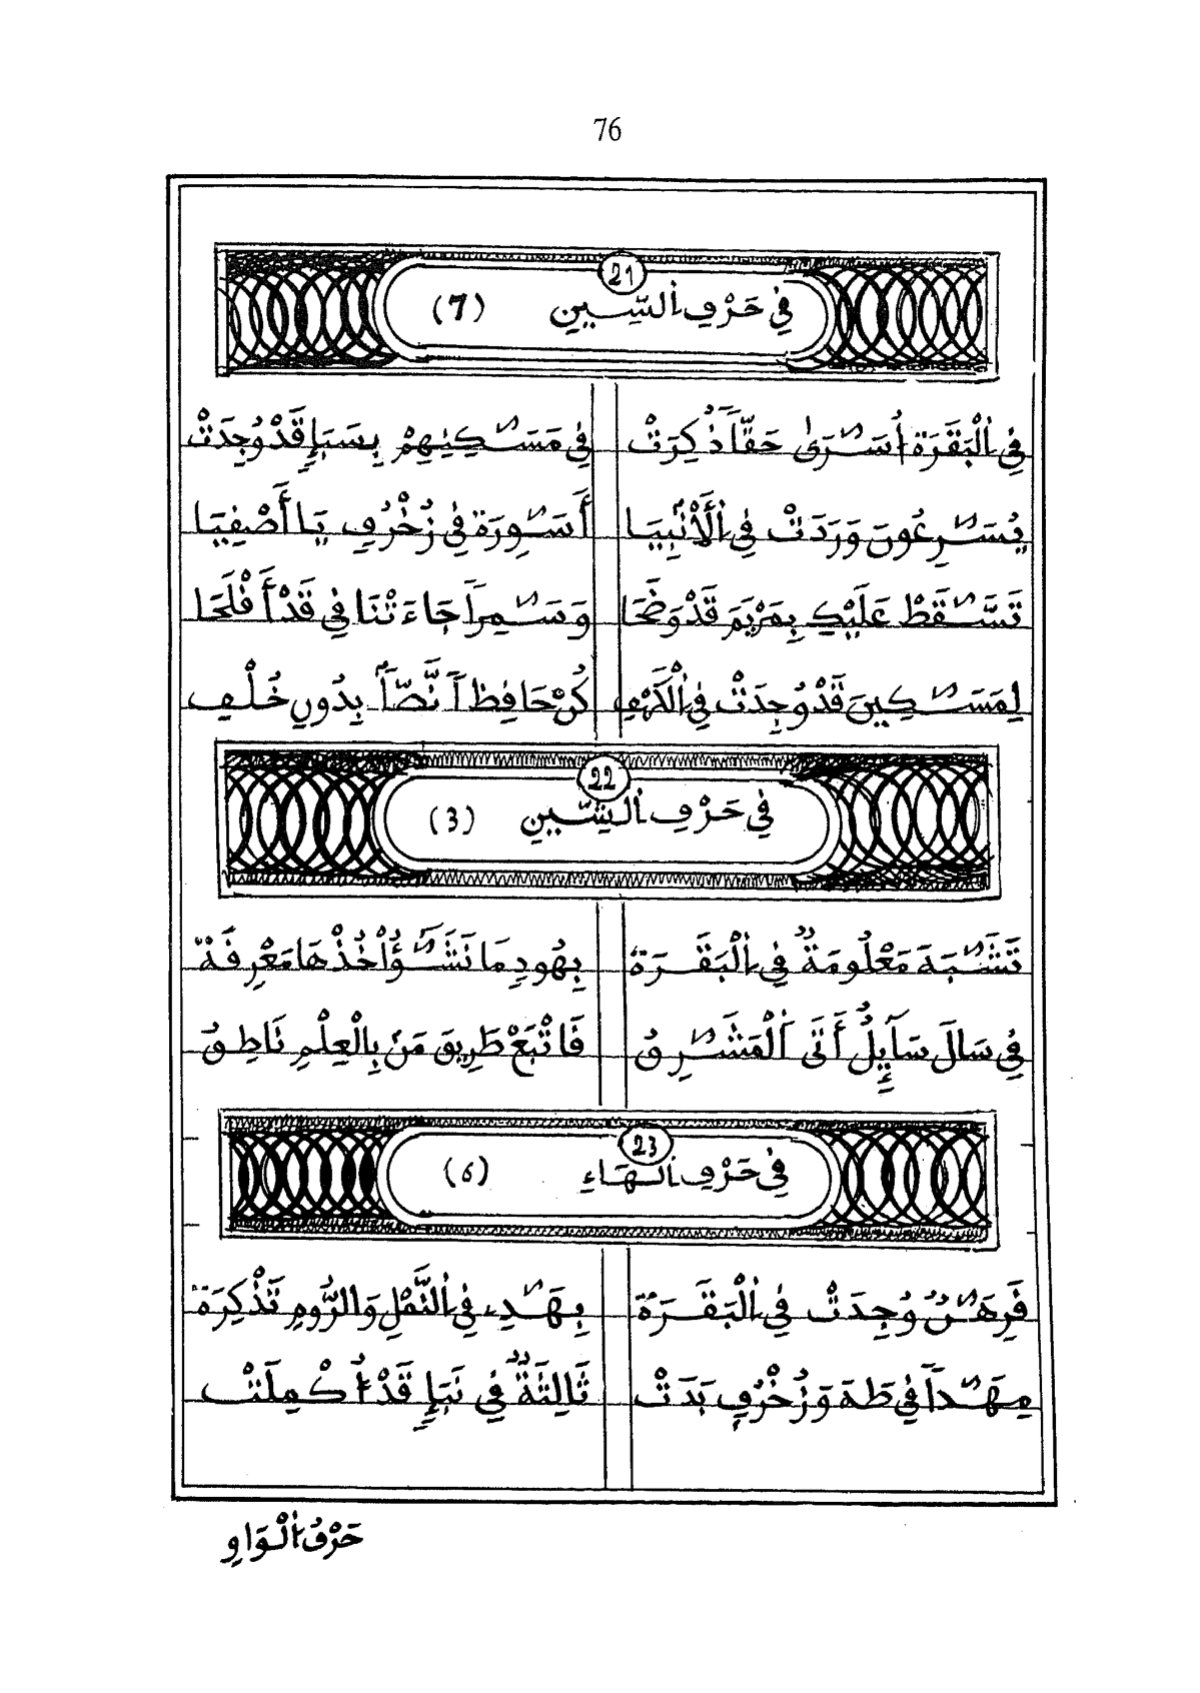 76
21
فِي حَرْفِ اَلسِّينِ (7)
فِي اِلْبَقَرَةِ أُسَٰرَىٰ حَقّاً ذُكِرَتْ فِي مَسَٰكِنِهِمْ بِسَبَإٍ قَدْ وُجِدَتْ
يُسَٰرِعُونَ وَرَدَتْ فِي اِلْأَنْبِيَا أَسَٰوِرَةٌ فِي زُخْرُفِ يَا أَصْفِيَا
تَسَّٰقَطْ عَلَيْكِ بِمَرْيَمَ قَدْ وَضَحَا وَسَٰمِراً جَاءَتْنَا فِي قَدْ أَفْلَحَا
لِمَسَٰكِينَ قَدْ وُجِدَتْ فِي اِلْكَهْفِ كُنْ حَافِظاً نَّصّاً بِدُونِ خُلْفِ
22
فِي حَرْفِ اَلشِّينِ (3)
تَشَٰبَهَ مَعْلُومَةٌ فِي اِلْبَقَرَةْ بِهُودِ مَا نَشَٰؤُاْ خُذْهَا مَعْرِفَةْ
فِي سَالَ سَآئِلٌ أَتَى اَلْمَشَٰرِقُ فَاتْبَعْ طَرِيقَ مَنْ بِالْعِلْمِ نَاطِقُ
23
فِي حَرْفِ اَلْهَاءِ (6)
فَرِهَٰنٌ وُجِدَتْ فِي اِلْبَقَرَةْ بِهَٰدِ فِي اِلنَّمْلِ وَالرُّومِ تَذْكِرَةْ
مِهَٰداً فِي طَهَ وَزُخْرُفٍ بَدَتْ ثَالِثَةٌ فِي نَبَإٍ قَدْ أُكْمِلَتْ
حَرْفُ اُلْوَاوِ